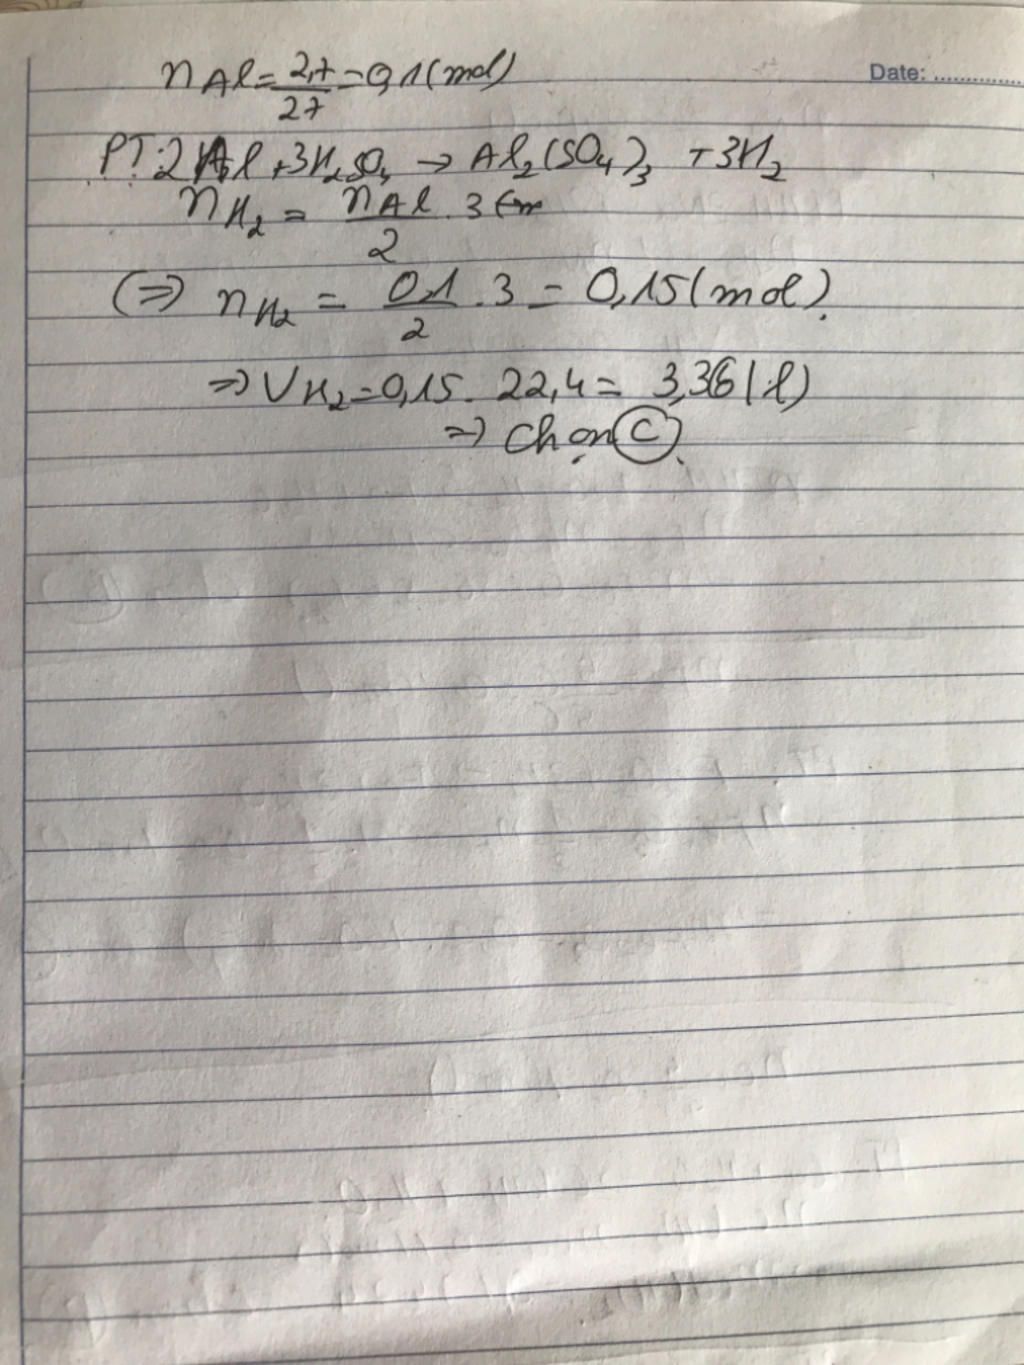 Date: ..............
nAl = 2,7/27 = 0,1 (mol)
PT: 2Al + 3H₂SO₄ → Al₂(SO₄)₃ + 3H₂
nH₂ = nAl/2 . 3
(⇒) nH₂ = 0,1/2 . 3 = 0,15 (mol).
⇒ VH₂ = 0,15 . 22,4 = 3,36 (l)
⇒ Chọn C.